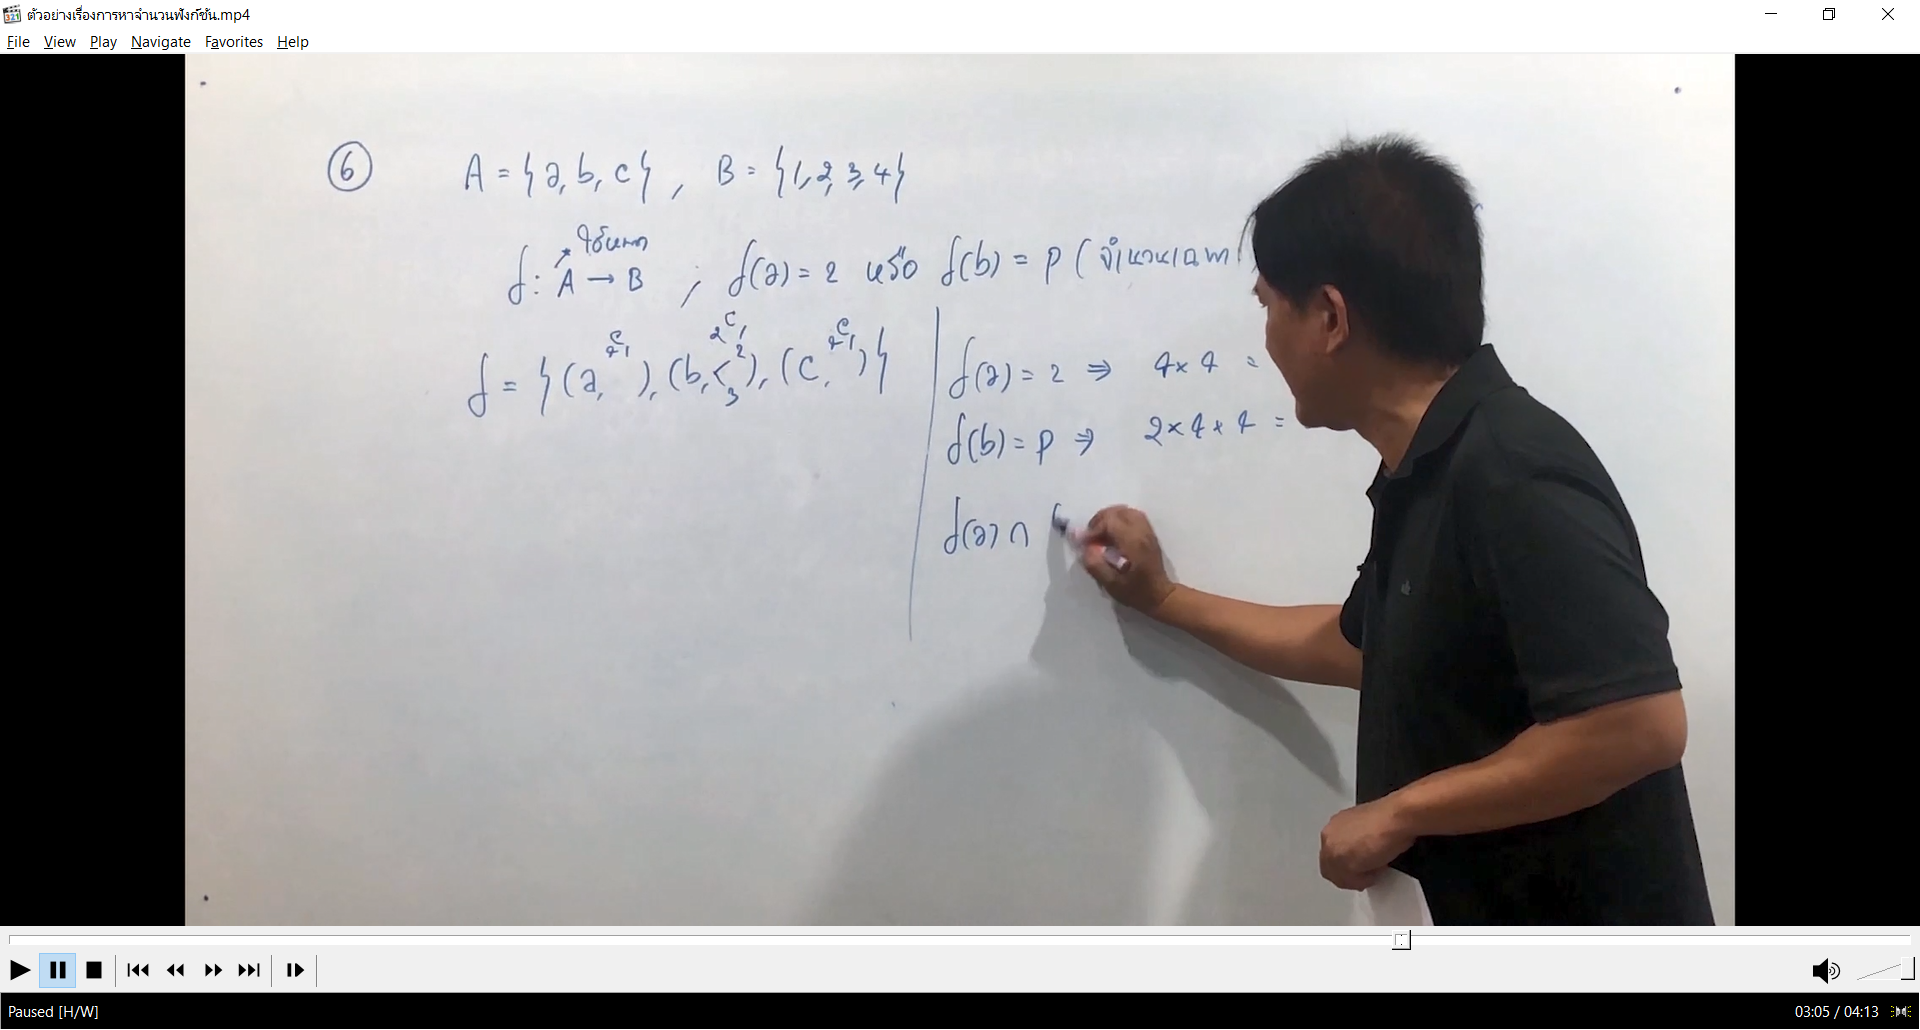 ตัวอย่างเรื่องการหาจำนวนฟังก์ชัน.mp4
File View Play Navigate Favorites Help
⑥ A = {a, b, c} , B = {1, 2, 3, 4}
ใช้หมด
f : A → B ; f(a) = 2 หรือ f(b) = p (จำนวนเฉพา
f = {(a, ), (b, < 2 3), (c, )}
2C1
f(a) = 2 ⇒ 4 × 4 =
f(b) = p ⇒ 2 × 4 × 4 =
f(a) ∩
Paused [H/W]
03:05 / 04:13